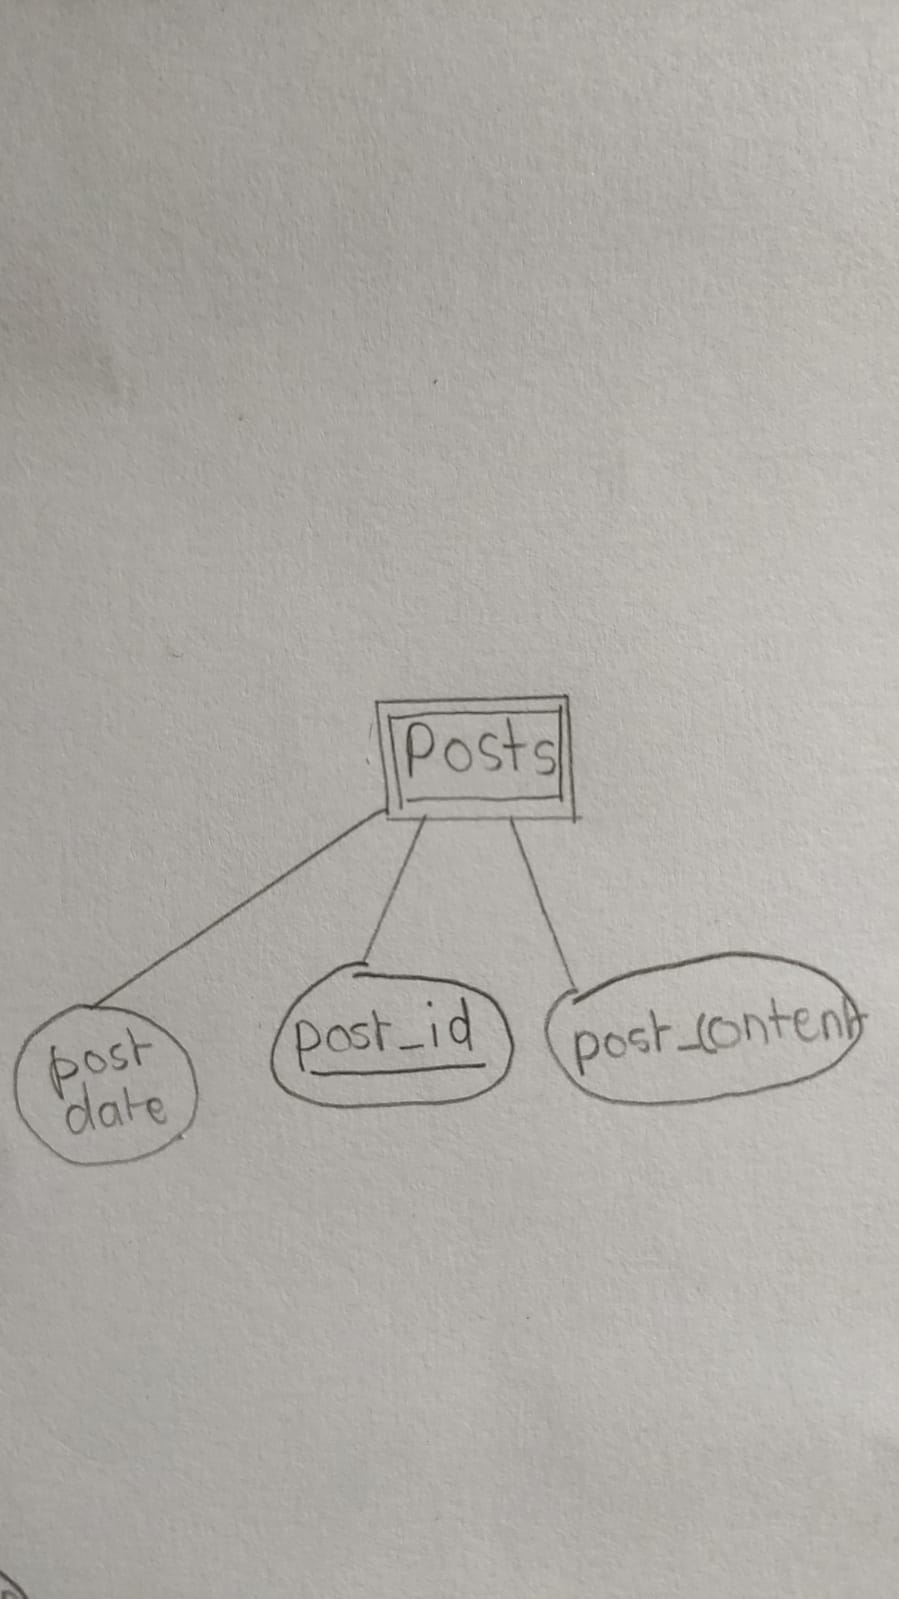 Posts
post
date
post_id
post_content